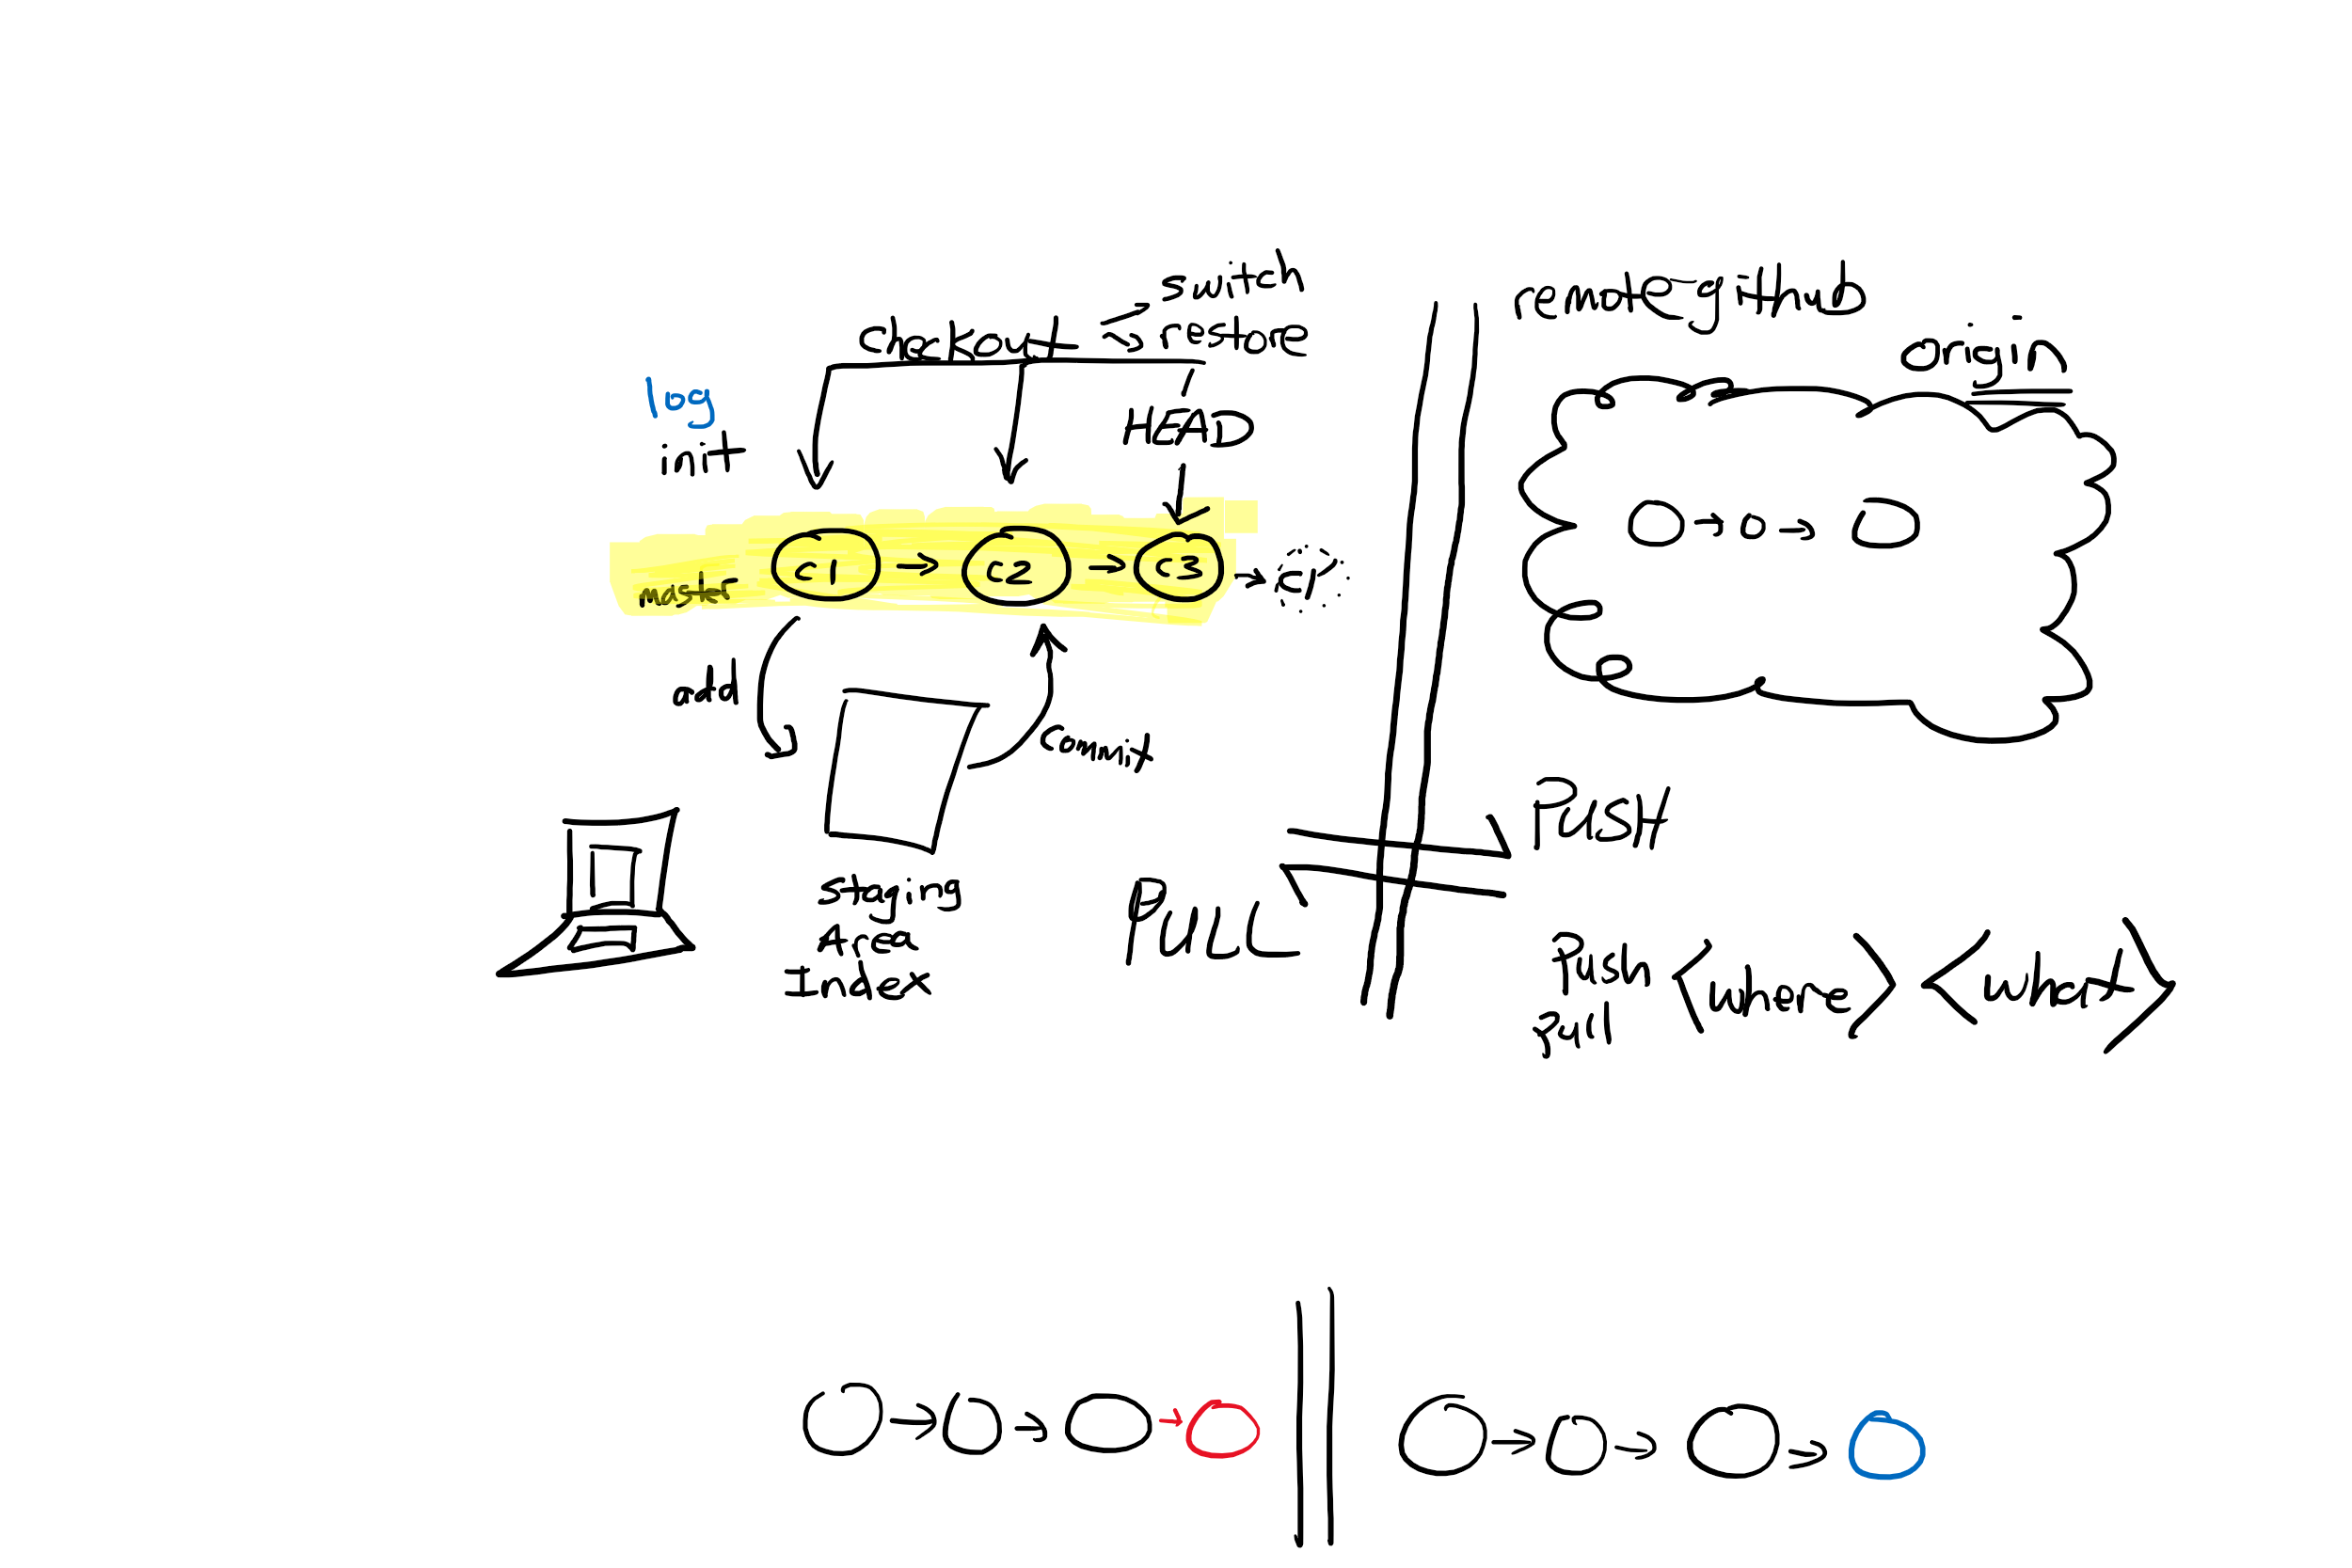 switch
restore
checkout
log
init
HEAD
master
c1
c2
c3
add
commit
staging
Area
Index
remote github
origin
PUSH
PULL
Push
Pull
<where> <what>